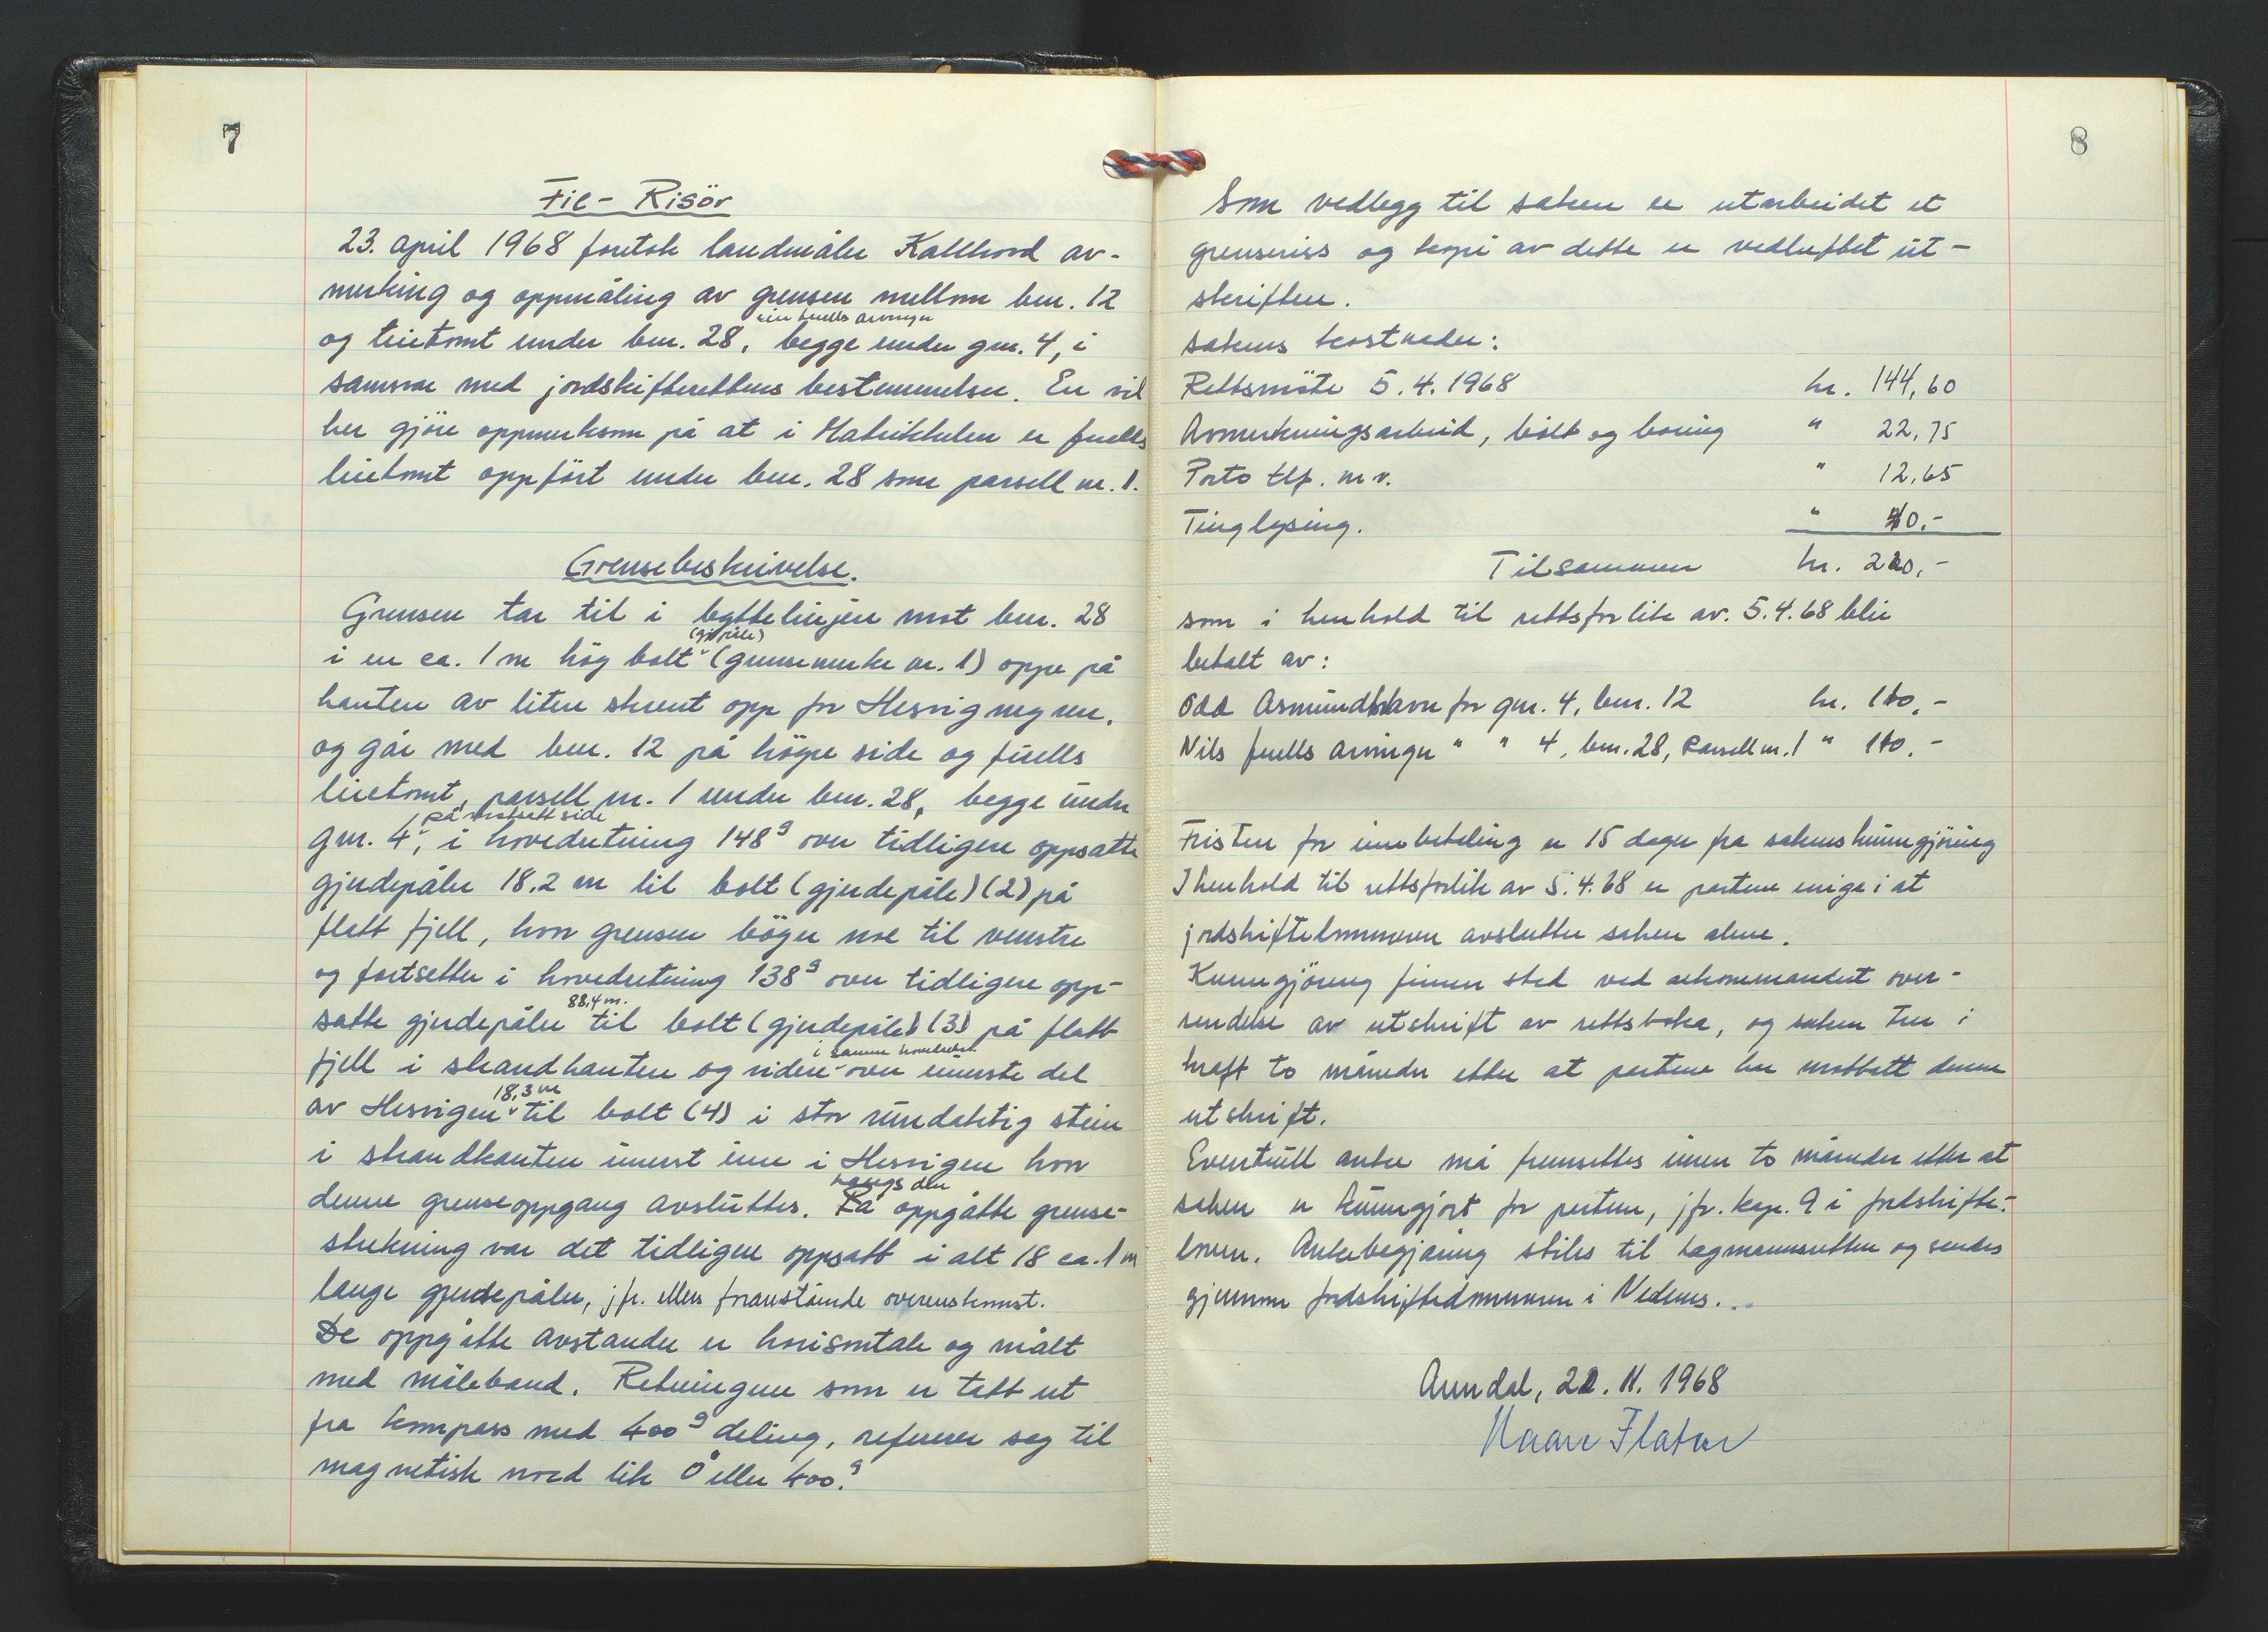 7
Fie - Risör
23. april 1968 foretok landmåler Kallhovd av-
merking og oppmåling av grensen mellom bnr. 12
arvinger
og linetomt under bnr. 28, begge under gnr. 4, i
samsvar med jordskifterettens bestemmelser. En vil
her gjöre oppmerksom på at i Matrikkelen er Juells
linetomt oppfört under bnr. 28 som parsell nr. 1.
Grensebeskrivelse.
Grensen tar til i byttelinjen mot bnr. 28
(gj.påle)
i en ca. 1 m høg bolt (grensemerke nr. 1) oppe på
kanten av liten skrent opp for Hesvigmyren,
og går med bnr. 12 på høyre side og Juells
linetomt, parsell nr. 1 under bnr. 28, begge under
på venstre side
gnr. 4, i hovedretning 148g over tidligere oppsatte
gjerdepåler 18,2 m til bolt (gjerdepåle) (2) på
flatt fjell, hvor grensen böyer noe til venstre
og fortsetter i hovedretning 138g over tidligere opp-
88,4 m.
satte gjerdepåler til bolt (gjerdepåle) (3) på flatt
i samme hovedretn.
fjell i strandkanten og videre over innerste del
18,3 m
av Hesvigen til bolt (4) i stor rundaktig stein
i strandkanten innerst inne i Hesvigen hvor
langs den
denne grenseoppgang avsluttes. På oppgåtte grense-
strekning var det tidligere oppsatt i alt 18 ca. 1 m
lange gjerdepåler, jfr. ellers foranstående overenskomst.
De oppgåtte avstander er horisontale og målt
med måleband. Retningene som er tatt ut
fra kompass med 400g deling, referer seg til
magnetisk nord lik 0 eller 400g.
8
Som vedlegg til saken er utarbeidet et
grenseriss og kopi av dette er vedheftet ut-
skriften.
Sakens kostnader:
Rettsmöte 5.4.1968 kr. 144,60
Avmerkningsarbeid, bolt og boring " 22,75
Porto tlf. m.v. " 12,65
Tinglysing. " 40.-
Tilsammen kr. 220,-
som i henhold til rettsforlik av. 5.4.68 blir
betalt av:
Odd Asmundhavn for gnr. 4, bnr. 12 kr. 110,-
Nils Juells arvinger " " 4, bnr. 28, Parsell nr. 1 " 110.-
Fristen for innbetaling er 15 dager fra sakens kunngjöring
I henhold til rettsforlik av 5.4.68 er partene enige i at
jordskiftedommeren avslutter saken alene.
Kunngjöring finner sted ved rekommandert over-
sendelse av utskrift av rettsboka, og saken trer i
kraft to måneder etter at partene har mottatt denne
utskrift.
Eventuell anke må fremsettes innen to måneder etter at
saken er kunngjort for partene, jfr. kap. 9 i jordskifte-
loven. Ankebegjæring stiles til lagmannsretten og sendes
gjennom jordskiftedommeren i Nedenes.
Arendal, 22. 11. 1968